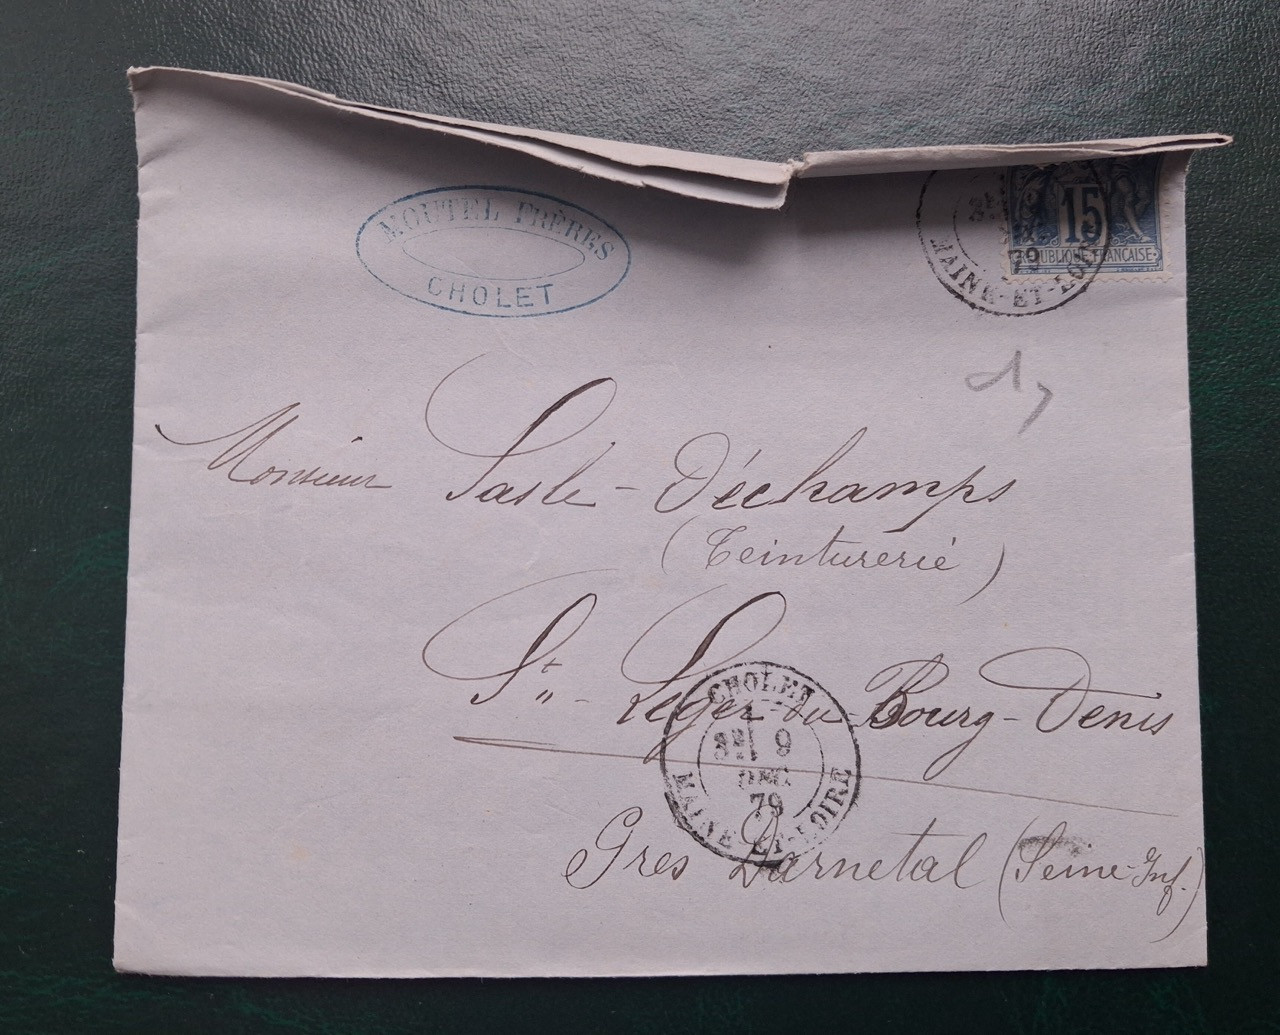 MOUTEL FRÈRES
CHOLET
15
79
RÉPUBLIQUE FRANÇAISE
MAINE-ET-LOIRE
Monsieur Lasle-Déchamps
(Teinturerie)
St-Léger-du Bourg-Denis
CHOLET
9
DEC
79
MAINE-ET-LOIRE
Pres Darnetal (Seine-Inf.)